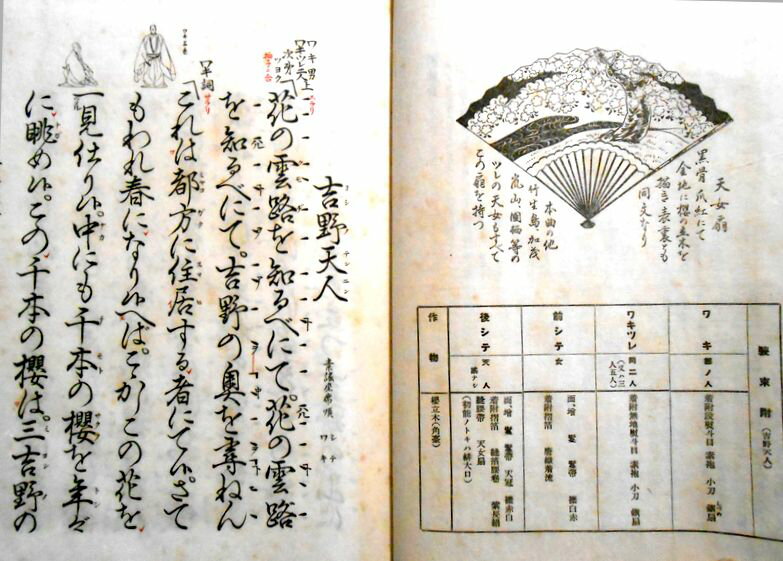 天女扇
黒骨 爪紅にて
金地に櫻の立木を
描き表裏とも
同文なり
本曲の他
竹生島加茂
嵐山國栖等の
ツレの天女もすべて
この扇を持つ
裝束附（吉野天人）
ワキ
都ノ人
着附段熨斗目 素袍 小刀 鎭扇
ワキツレ
同二人
（又ハ三人五人）
着附無地熨斗目 素袍 小刀 鎭扇
前シテ
女
後シテ
天人
作物
櫻立木（角臺）
吉野天人
ヨシノテンニン
素謠座席順
シテ
ワキ
ワキ男上
ワキツレ
次第
ツヨク
花の雲路を知るべにて。花の雲路
を知るべにて。吉野の奥を尋ねん
ワキ詞
サラリ
これは都方に住居する者にて候。さて
もわれ春になり候へば。こゝかしこの花を
一見仕り候。中にも千本の櫻を年々
に眺め候。この千本の櫻は。三吉野の